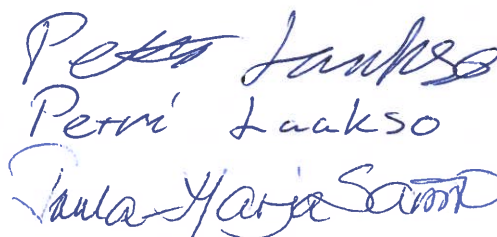 Petri Laakso
Petri Laakso
Paula-Marja